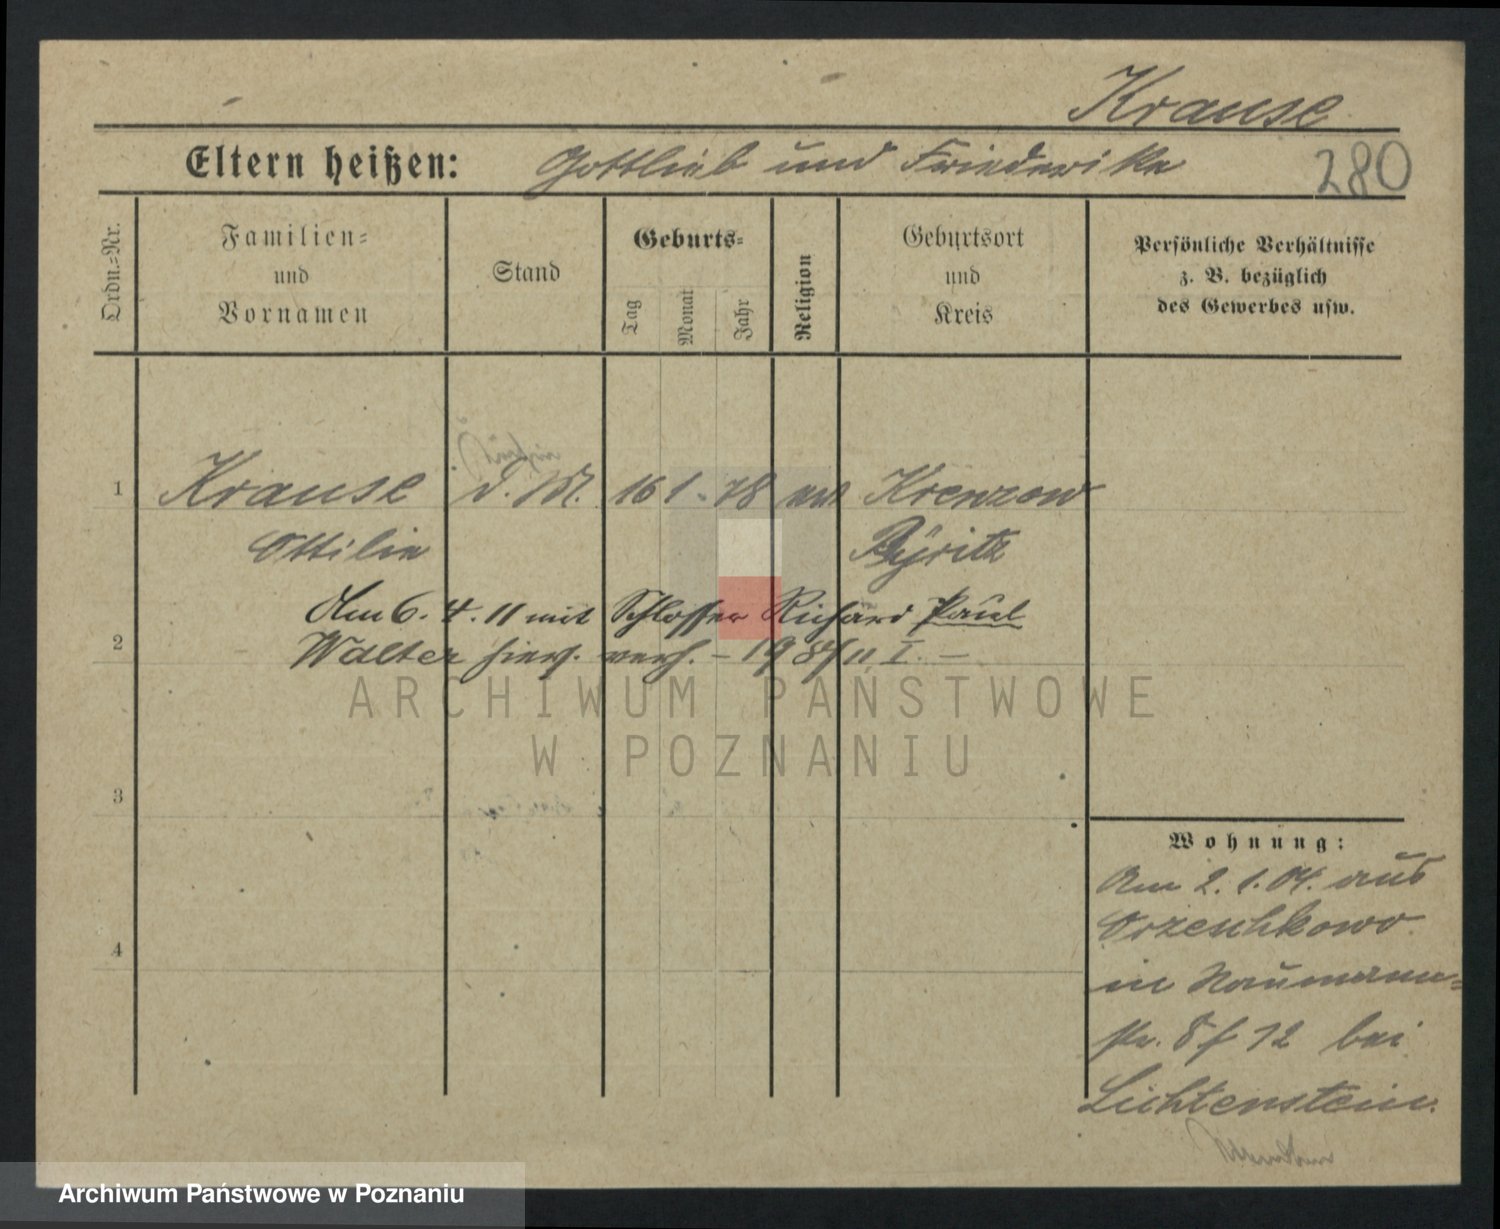 Krause
Eltern heißen: Gottlieb und Friederike
280
Ordn.=Nr.
Familien=
und
Vornamen
Stand
Geburts=
Tag
Monat
Jahr
Religion
Geburtsort
und
Kreis
Persönliche Verhältnisse
z. B. bezüglich
des Gewerbes usw.
1 Krause D. M. 16 1. 78 ev Krenzow
Ottilie Pyritz
Am 6. 4. 11 mit Schlosser Richard Paul
2 Walter hier verh. – 198/11 I. –
ARCHIWUM PAŃSTWOWE
W POZNANIU
3
4
Wohnung:
Am 2. 1. 04. aus
Orzeschkowo
in Naumann=
str. 8 f 12 bei
Lichtenstein.
Archiwum Państwowe w Poznaniu